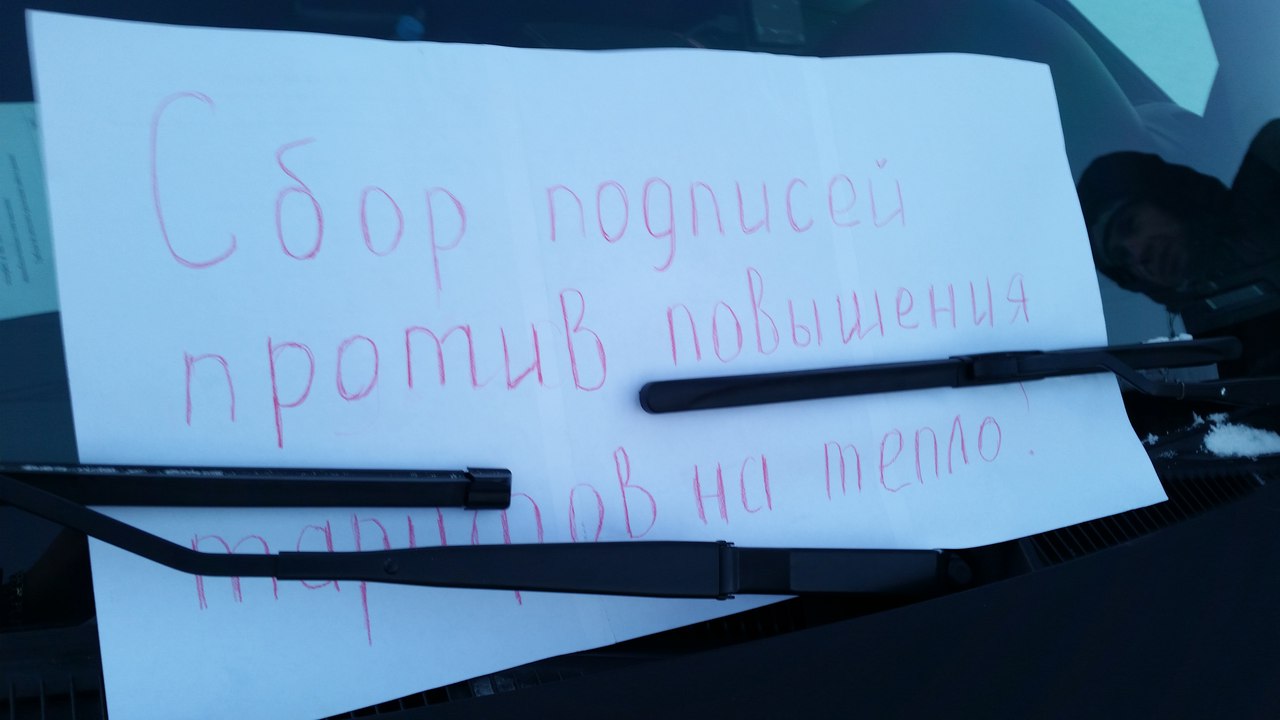 Сбор подписей
против повышения
тарифов на тепло!